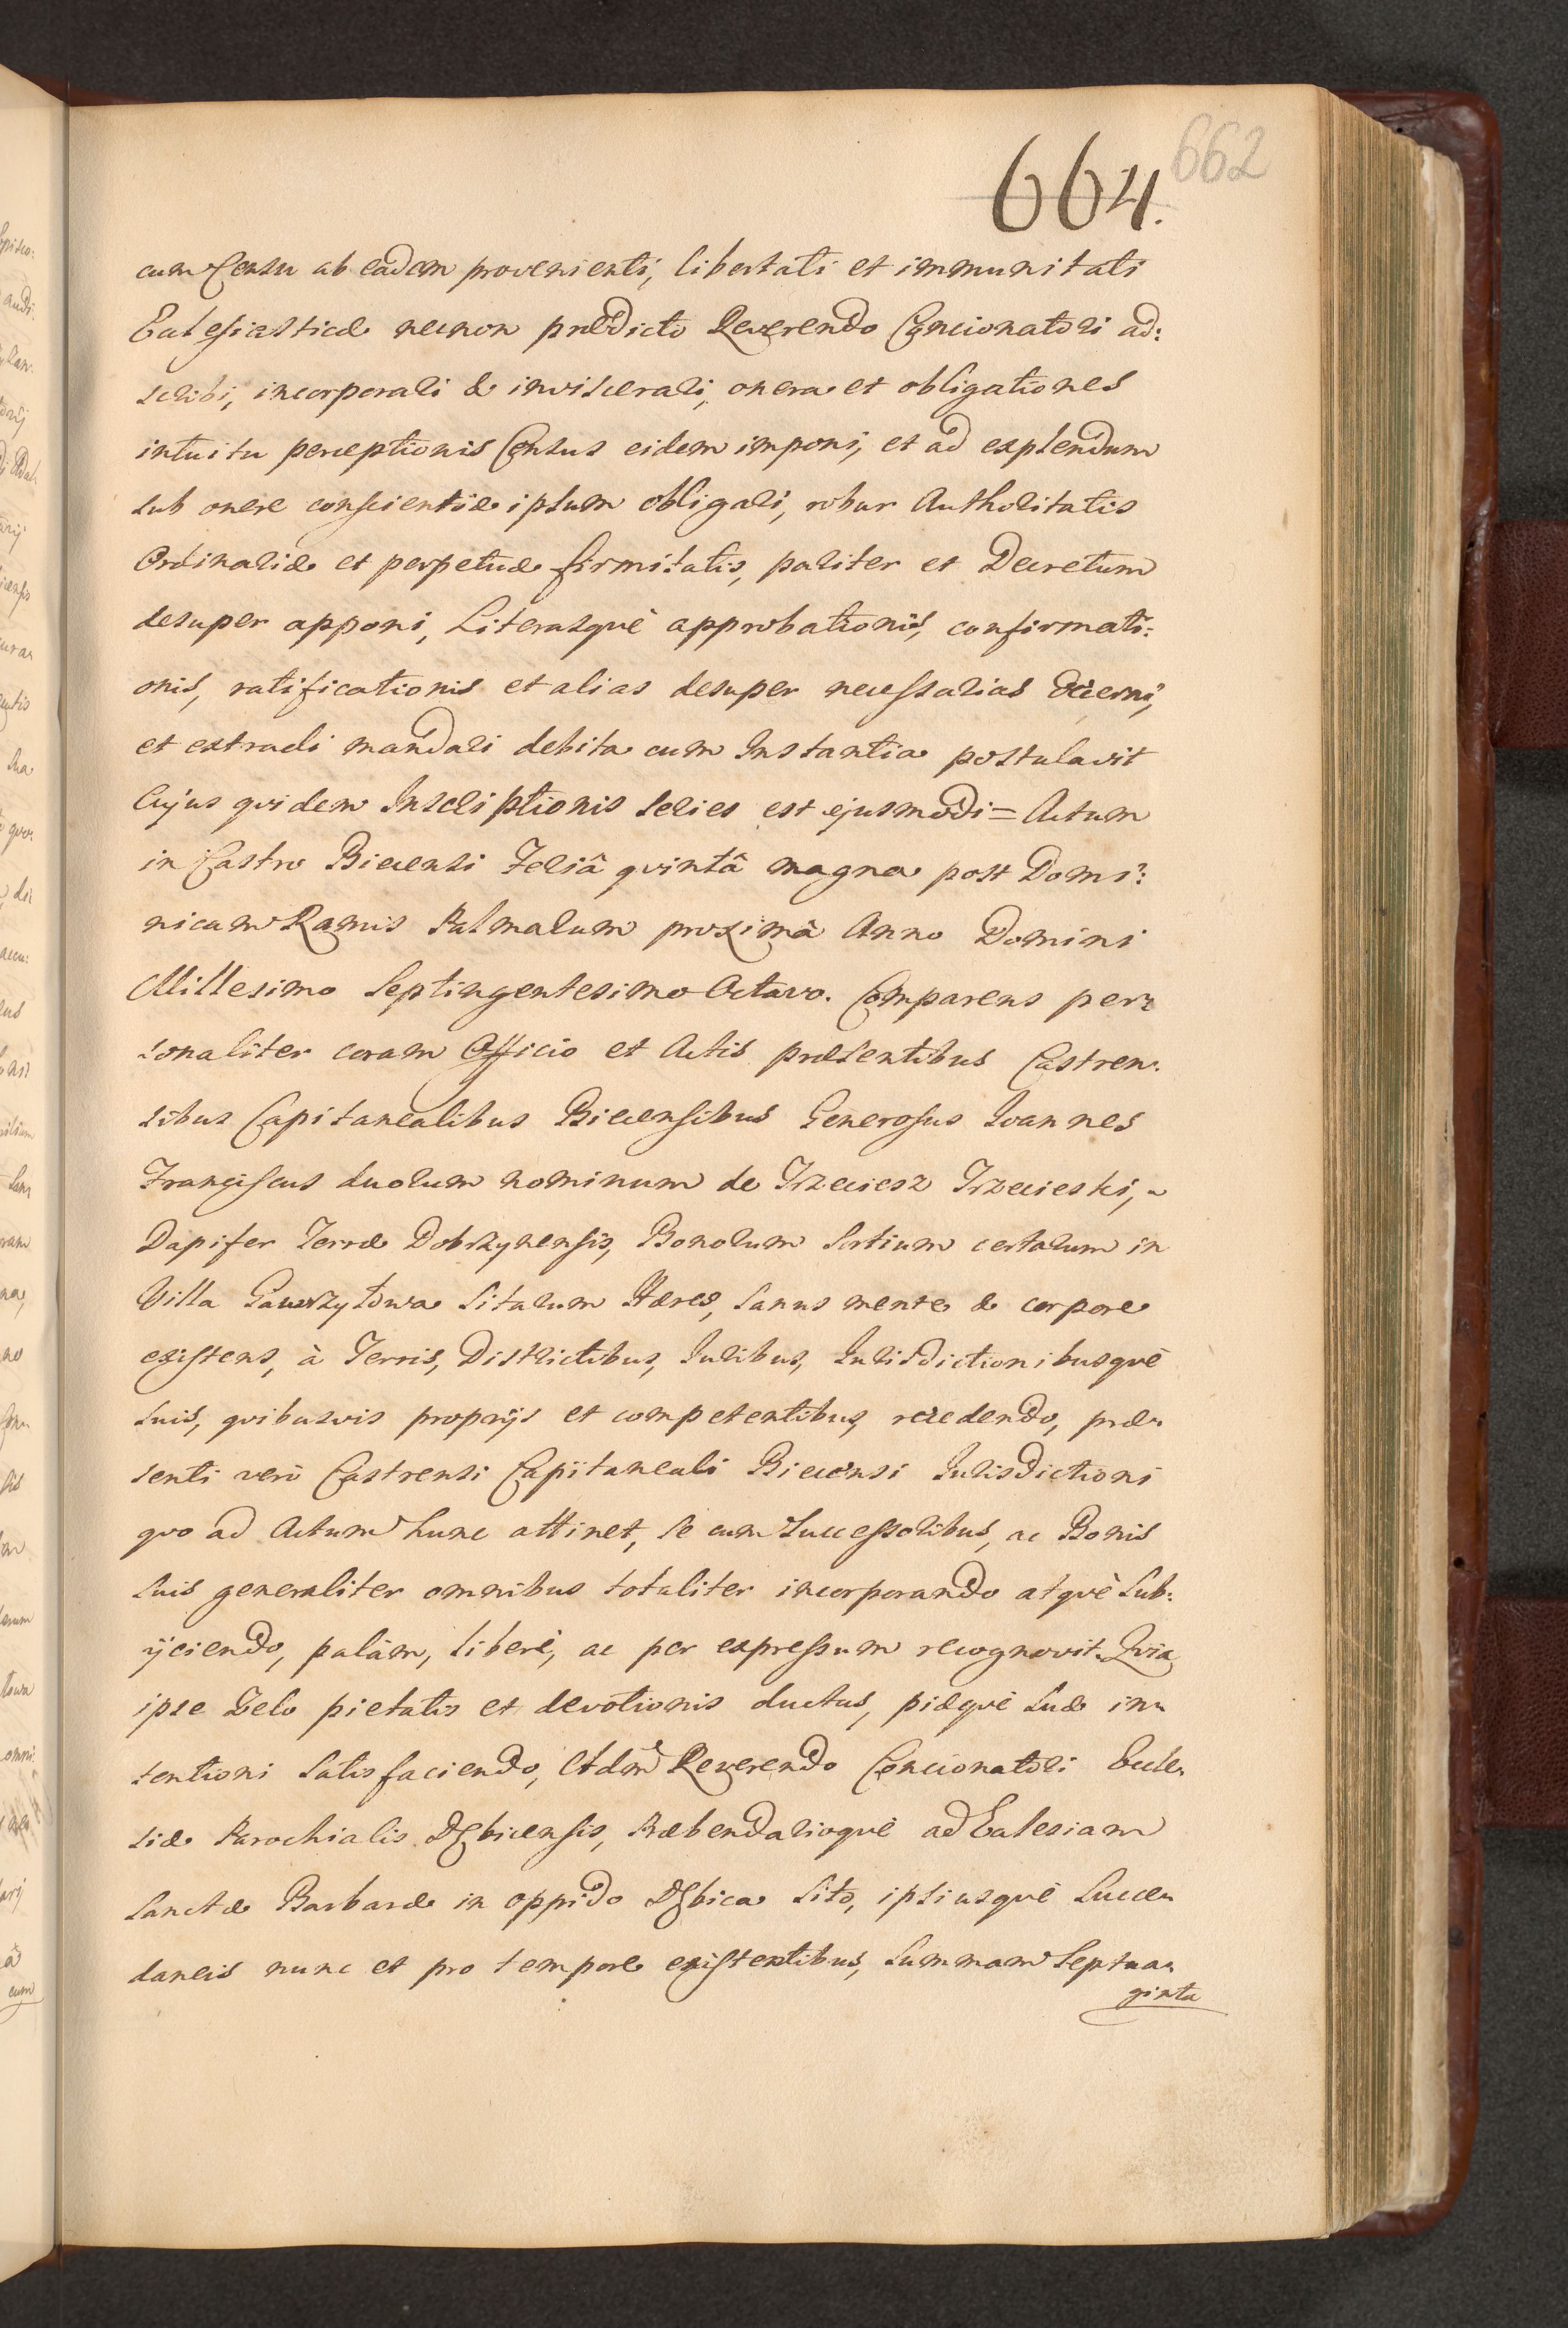 664. 662
cum Censu ab eadem provenienti, libertati et immunitati
Ecclesiasticæ necnon prædicto Reverendo Concionatori ad:
scribi, incorporari & inviscerari, onera et obligationes
intuitu perceptionis Census eidem imponi, et ad explendum
sub onere conscientiæ ipsum obligari, robur Authoritatis
Ordinariæ et perpetuæ firmitatis, pariter et Decretum
desuper apponi, Literasquè approbationis, confirmati:
onis, ratificationis et alias desuper necessarias decerni,
et extradi mandari debita cum Instantia postulavit
Cujus quidem Inscriptionis series est ejusmodi = Actum
in Castro Biecensi Feriâ quintâ magna post Domi:
nicam Ramis Palmarum proximâ Anno Domini
Millesimo Septingentesimo Octavo. Comparens per:
sonaliter coram Officio et Actis præsentibus Castren:
sibus Capitanealibus Biecensibus Generosus Ioannes
Franciscus duorum nominum de Trzeciesz Trzecieski,
Dapifer Terræ Dobrzynensis, Bonorum Sortium certarum in
Villa Gawrzyłowa sitarum Hæres, sanus mente & corpore
existens, à Terris, Districtibus, Iuribus, Iurisdictionibusquè
suis, quibusvis proprijs et competentibus, recedendo, præ:
senti verò Castrensi Capitaneali Biecensi Iurisdictioni
quo ad Actum hunc attinet, se cum Successoribus, ac Bonis
suis generaliter omnibus totaliter incorporando atquè Sub:
ijciendo, palàm, liberè, ac per expressum recognovit. Quia
ipse Zelo pietatis et devotionis ductus, piæquè suæ in:
tentioni satisfaciendo, Admº Reverendo Concionatori Eccle:
siæ Parochialis Dębicensis, Præbendarioquè ad Ecclesiam
Sanctæ Barbaræ in oppido Dębica sito, ipsiusquè Succe:
daneis nunc et pro tempore existentibus, Summam Septua:
ginta